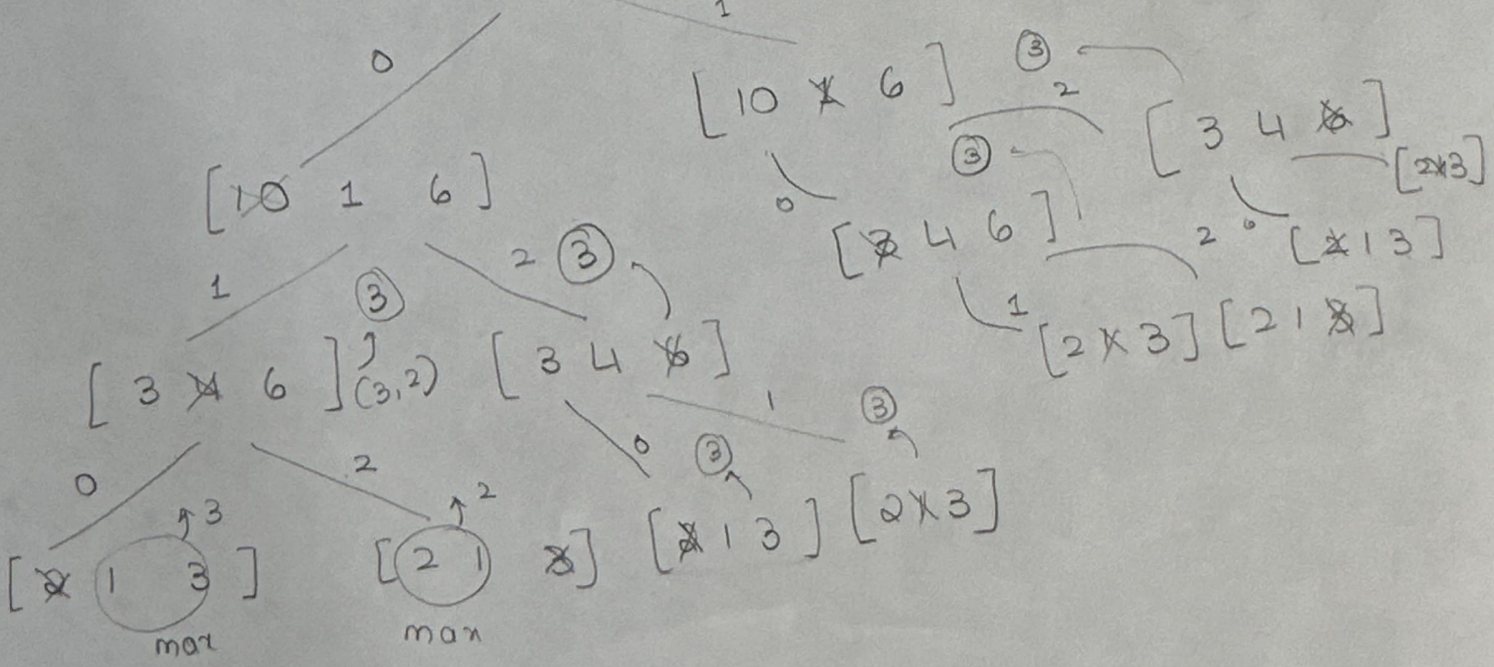 0 1
[10 1 6] ③
[10 1 6] 2 [3 4 6]
③ [2 1 3]
0 [3 4 6] 2 0 [2 1 3]
1 2 ③
③ 1 [2 1 3] [2 1 3]
[3 4 6] (3,2) [3 4 6]
0 2 0 1 ③ ③
3 2
[2 1 3] [2 1 3] [2 1 3] [2 1 3]
max max